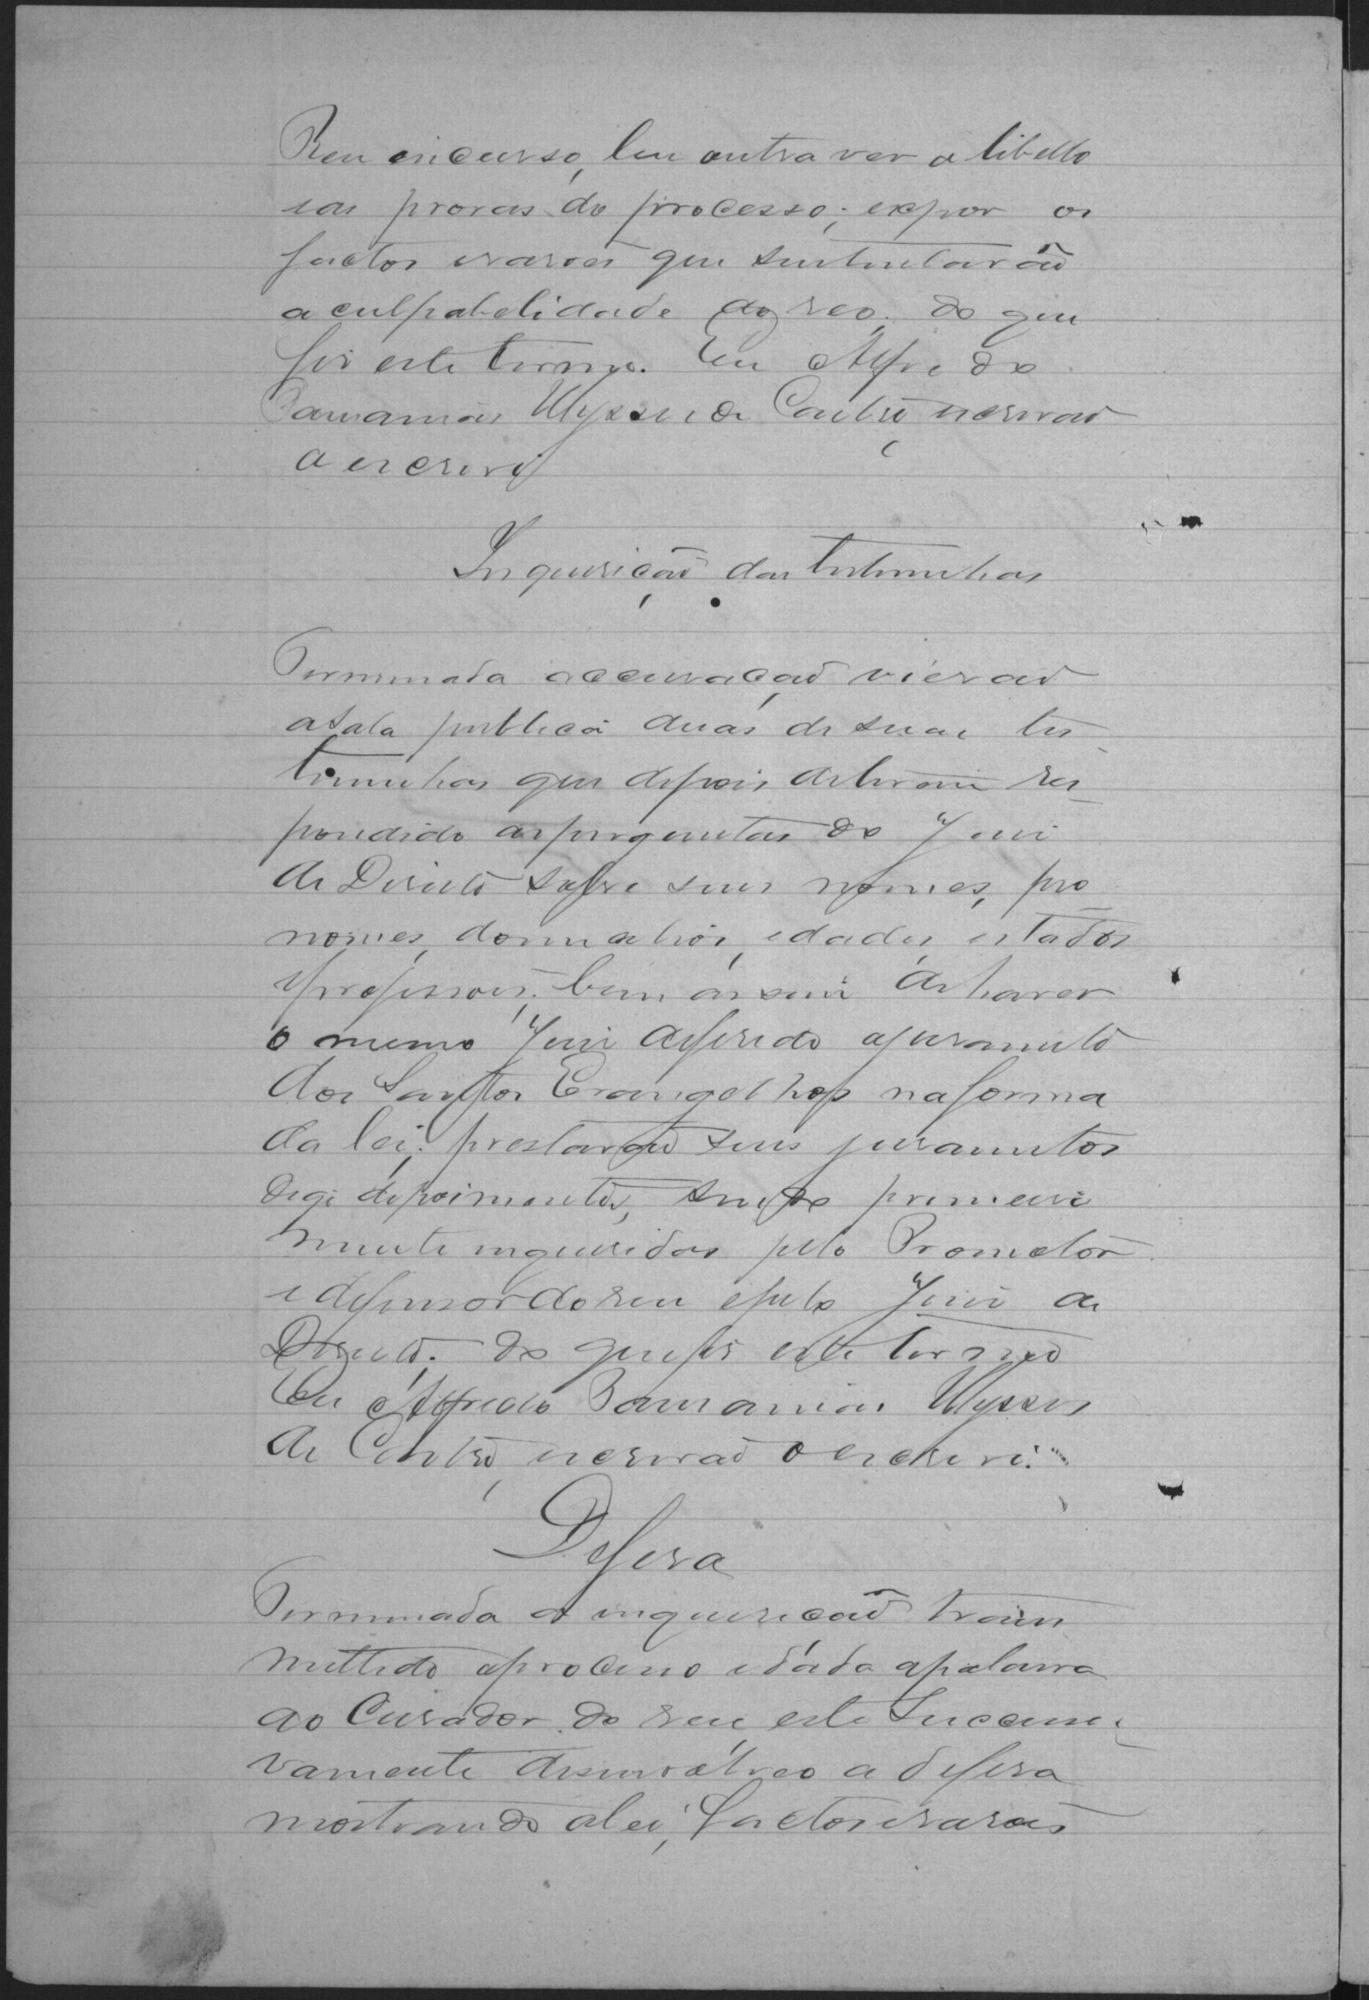 Reu incurso, leu outra vez o libello
e as provas do processo; expoz os
factos e rasões que sustentarão
a culpabelidade do reo, do que
fiz este termo. Eu Alfredo
Ulysses de Castro, escrivão
o escrevi
Inquirição das testemunhas
Terminada accusação vierão
a sala publica duas de suas tes-
temunhas que depois de terem res-
pondido as perguntas do Juiz
de Direito sobre seus nomes, pro-
nomes, domicilios, edades, estados
e profissoes; bem assim de haver
o mesmo Juiz deferido o juramento
dos Santos Evangelhos na forma
da lei; prestarão seus juramentos
digo depoimentos, sendo primeira
mente inqueridos pelo Promotor
e defensor do reu e pelo Juiz de
Direito. do que fiz este termo
Eu Alfredo Ulysses
de Castro, escrivão o escrevi.
Defesa
Terminada a inquirição trans
mettido o processo e dada a palavra
ao Curador do reu, este successi-
vamente desenvolveo a defesa
mostrando a lei, factos e rasões